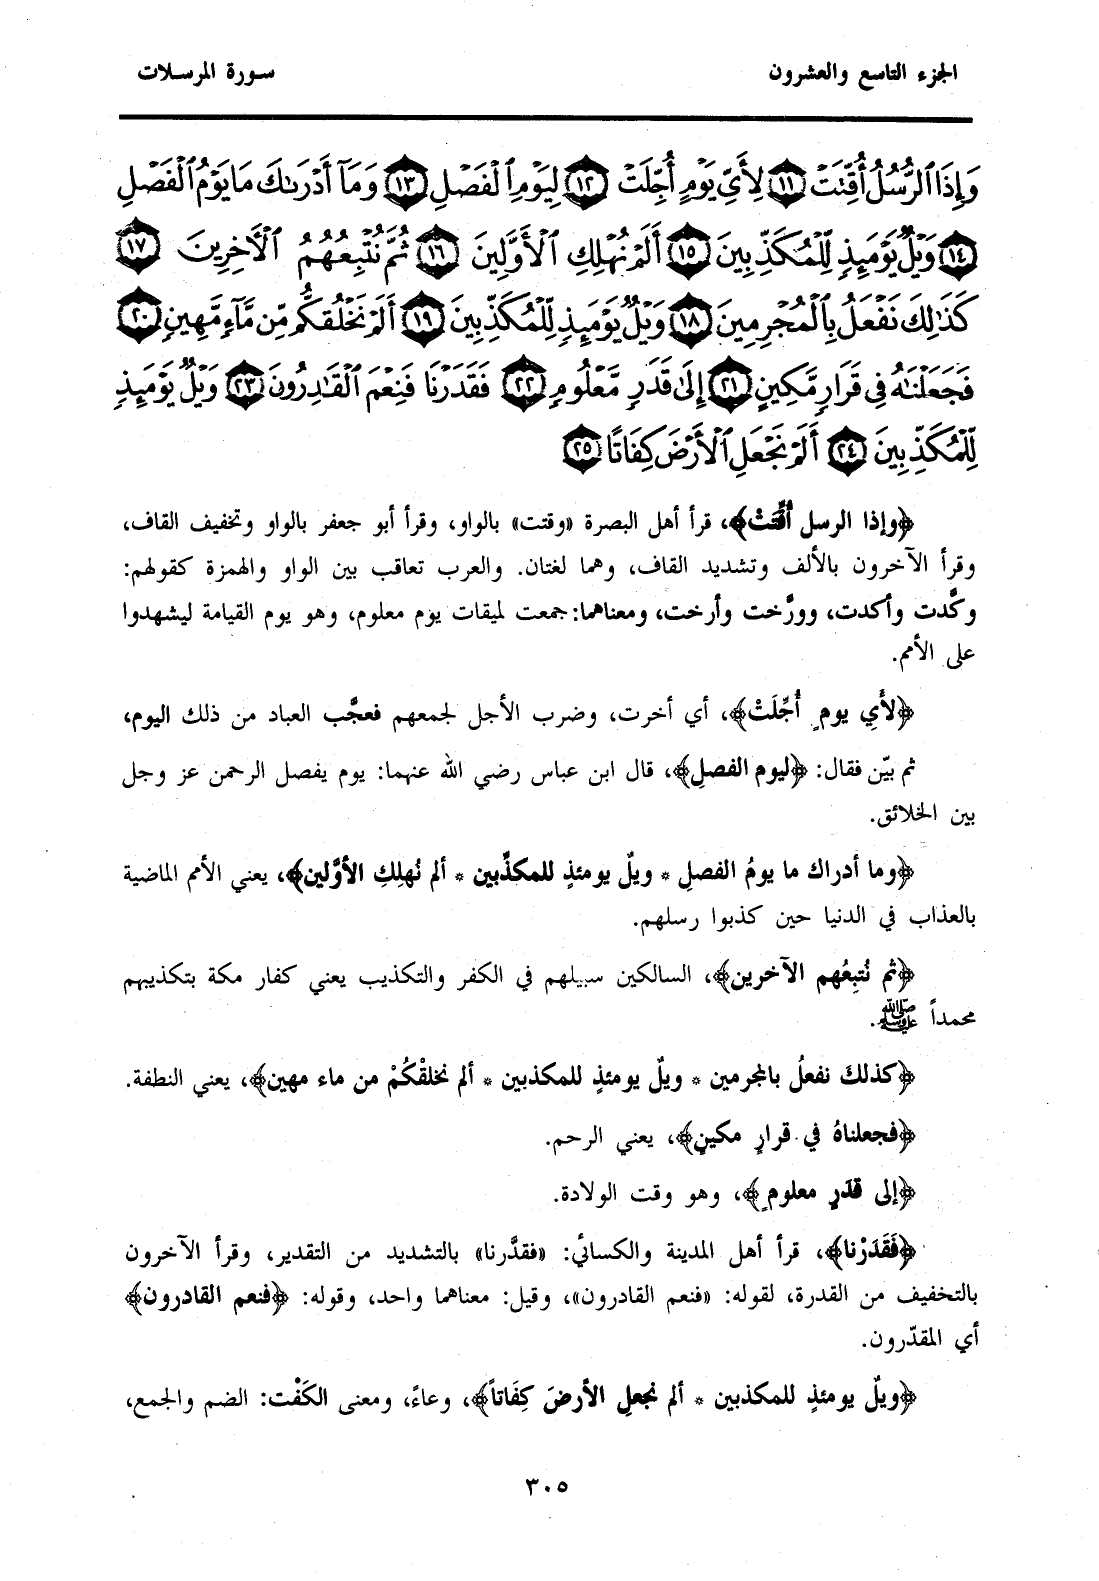 الجزء التاسع والعشرون
سورة المرسلات
وَإِذَا ٱلرُّسُلُ أُقِّتَتْ ١١ لِأَيِّ يَوْمٍ أُجِّلَتْ ١٢ لِيَوْمِ ٱلْفَصْلِ ١٣ وَمَآ أَدْرَىٰكَ مَا يَوْمُ ٱلْفَصْلِ
١٤ وَيْلٌ يَوْمَئِذٍ لِّلْمُكَذِّبِينَ ١٥ أَلَمْ نُهْلِكِ ٱلْأَوَّلِينَ ١٦ ثُمَّ نُتْبِعُهُمُ ٱلْآخِرِينَ ١٧
كَذَٰلِكَ نَفْعَلُ بِٱلْمُجْرِمِينَ ١٨ وَيْلٌ يَوْمَئِذٍ لِّلْمُكَذِّبِينَ ١٩ أَلَمْ نَخْلُقكُّم مِّن مَّآءٍ مَّهِينٍ ٢٠
فَجَعَلْنَٰهُ فِي قَرَارٍ مَّكِينٍ ٢١ إِلَىٰ قَدَرٍ مَّعْلُومٍ ٢٢ فَقَدَرْنَا فَنِعْمَ ٱلْقَٰدِرُونَ ٢٣ وَيْلٌ يَوْمَئِذٍ
لِّلْمُكَذِّبِينَ ٢٤ أَلَمْ نَجْعَلِ ٱلْأَرْضَ كِفَاتًا ٢٥
﴿وإذا الرسل أُقِّتَتْ﴾، قرأ أهل البصرة «وقتت» بالواو، وقرأ أبو جعفر بالواو وتخفيف القاف،
وقرأ الآخرون بالألف وتشديد القاف، وهما لغتان. والعرب تعاقب بين الواو والهمزة كقولهم:
وكَّدت وأكدت، وورَّخت وأرخت، ومعناهما: جمعت لميقات يوم معلوم، وهو يوم القيامة ليشهدوا
على الأمم.
﴿لأَيِ يومٍ أُجِّلَتْ﴾، أي أخرت، وضرب الأجل لجمعهم فعجَّب العباد من ذلك اليوم،
ثم بيّن فقال: ﴿ليوم الفصلِ﴾، قال ابن عباس رضي الله عنهما: يوم يفصل الرحمن عز وجل
بين الخلائق.
﴿وما أدراك ما يومُ الفصلِ * ويلٌ يومئذٍ للمكذِّبين * ألم نُهلِكِ الأوَّلين﴾، يعني الأمم الماضية
بالعذاب في الدنيا حين كذبوا رسلهم.
﴿ثم نُتبِعُهم الآخرين﴾، السالكين سبيلهم في الكفر والتكذيب يعني كفار مكة بتكذيبهم
محمداً ﷺ.
﴿كذلكَ نفعلُ بالمجرمين * ويلٌ يومئذٍ للمكذبين * ألم نخلقْكُمْ من ماء مهين﴾، يعني النطفة.
﴿فجعلناهُ في قرارٍ مكينٍ﴾، يعني الرحم.
﴿إلى قَدَرٍ معلومٍ﴾، وهو وقت الولادة.
﴿فَقَدَرْنا﴾، قرأ أهل المدينة والكسائي: «فقدَّرنا» بالتشديد من التقدير، وقرأ الآخرون
بالتخفيف من القدرة، لقوله: «فنعم القادرون»، وقيل: معناهما واحد، وقوله: ﴿فنعم القادرون﴾
أي المقدّرون.
﴿ويلٌ يومئذٍ للمكذبين * ألم نجعلِ الأرضَ كِفَاتاً﴾، وعاءً، ومعنى الكَفْت: الضم والجمع،
٣٠٥